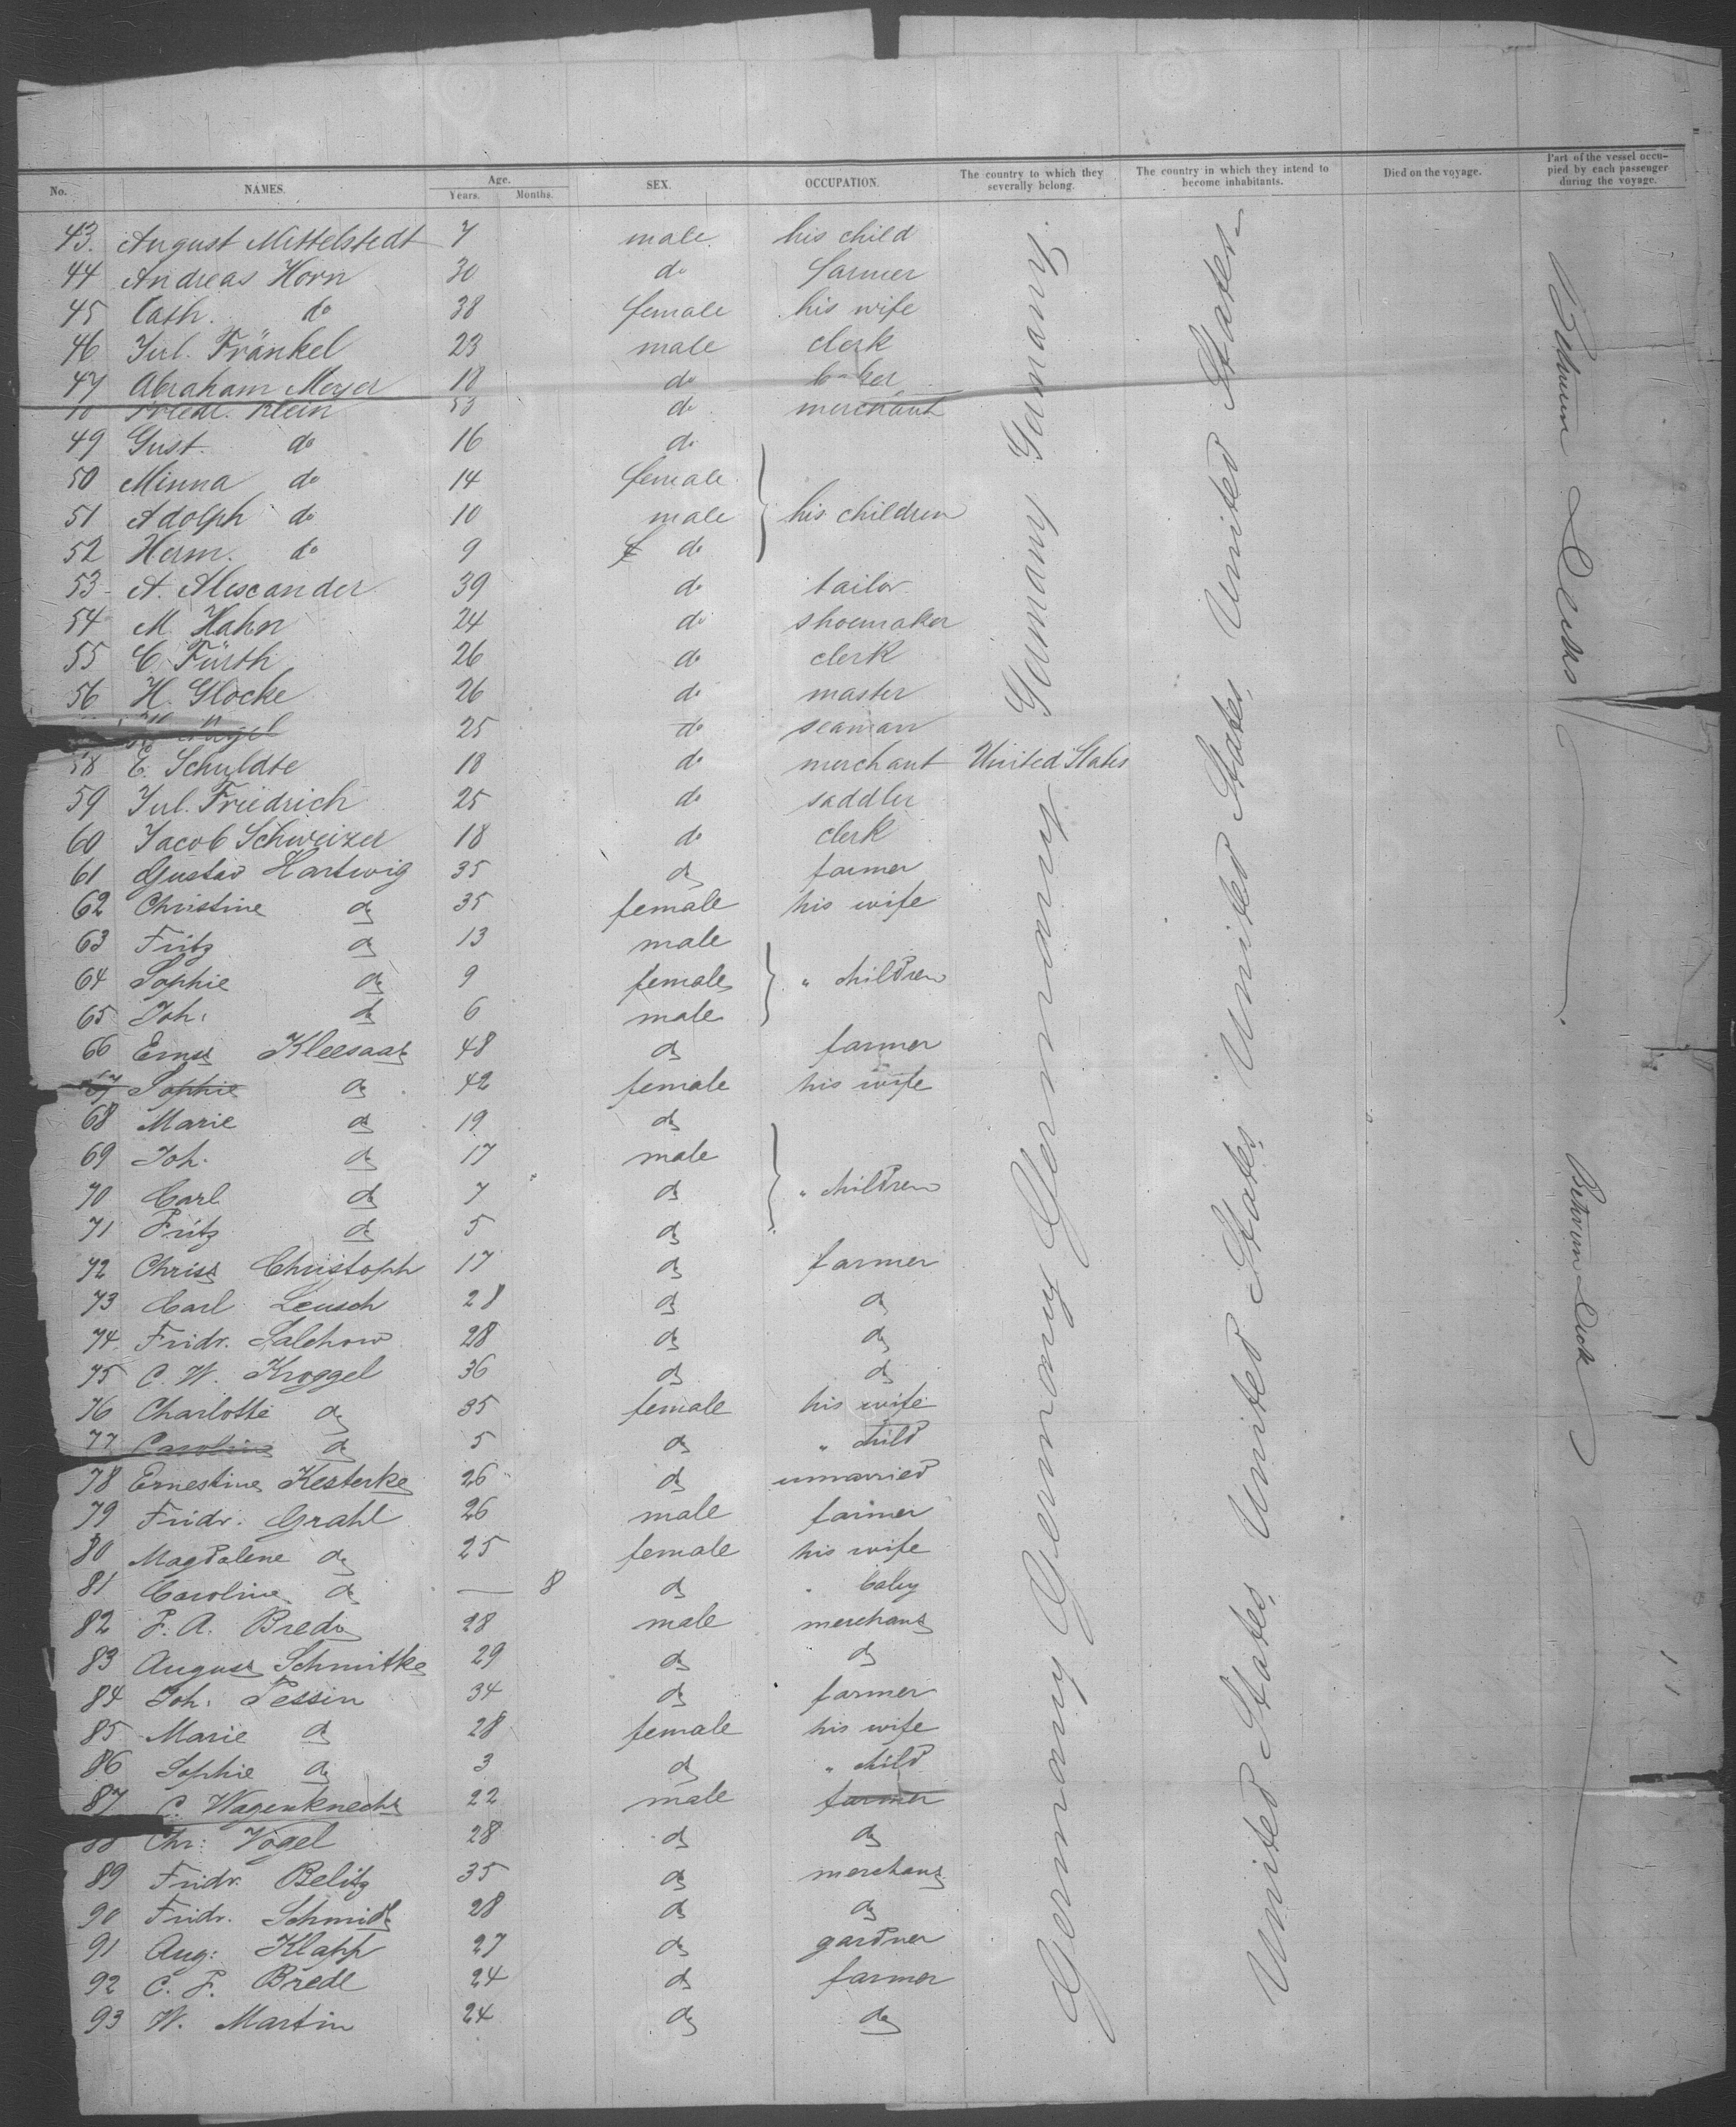 No. NAMES. Age. Years. Months. SEX. OCCUPATION. The country to which they severally belong. The country in which they intend to become inhabitants. Died on the voyage. Part of the vessel occupied by each passenger during the voyage.
43. August Mittelstedt 7 male his child
44 Andreas Horn 30 do farmer
45 Cath. do 38 female his wife
46 Jul. Fränkel 23 male clerk
47 Abraham Meyer 18 do baker
Friedr. Klein 53 do merchant
49 Gust. do 16 do
50 Minna do 14 female
51 Adolph do 10 male his children
52 Herm. do 9 do
53 A. Alexander 39 do tailor
54 M. Hahn 24 do shoemaker
55 C. Fürth 26 do clerk
56 H. Glocke 26 do master
25 do seaman
58 E. Schuldte 18 do merchant United States
59 Jul. Friedrich 25 do saddler
60 Jacob Schweizer 18 do clerk
61 Gustav Hartwig 35 do farmer
62 Christine do 35 female his wife
63 Fritz do 13 male
64 Sophie do 9 female " children
65 Joh. do 6 male
66 Ernst Kleesaat 48 do farmer
67 Sophie do 42 female his wife
68 Marie do 19 do
69 Joh. do 17 male
70 Carl do 7 do " children
71 Fritz do 5 do
72 Christ Christoph 17 do farmer
73 Carl Leusch 28 do do
74 Fridr. Salchow 28 do do
75 C. W. Kroggel 36 do do
76 Charlotte do 35 female his wife
77 Caroline do 5 do " child
78 Ernestine Kesterke 26 do unmarried
79 Fridr. Grahl 26 male farmer
80 Magdalene do 25 female his wife
81 Caroline do — 8 do " baby
82 F. A. Brede 28 male merchant
83 August Schmitke 29 do do
84 Joh. Tessin 34 do farmer
85 Marie do 28 female his wife
86 Sophie do 3 do " child
87 C. Wagenknecht 22 male farmer
88 Chr. Vogel 28 do do
89 Fridr. Belitz 35 do merchant
90 Fridr. Schmidt 28 do do
91 Aug. Klapp 27 do gardner
92 C. F. Brede 24 do farmer
93 W. Martin 24 do do
Germany Germany Germany Germany Germany
United States United States United States United States United States
Between Decks
Between Deck